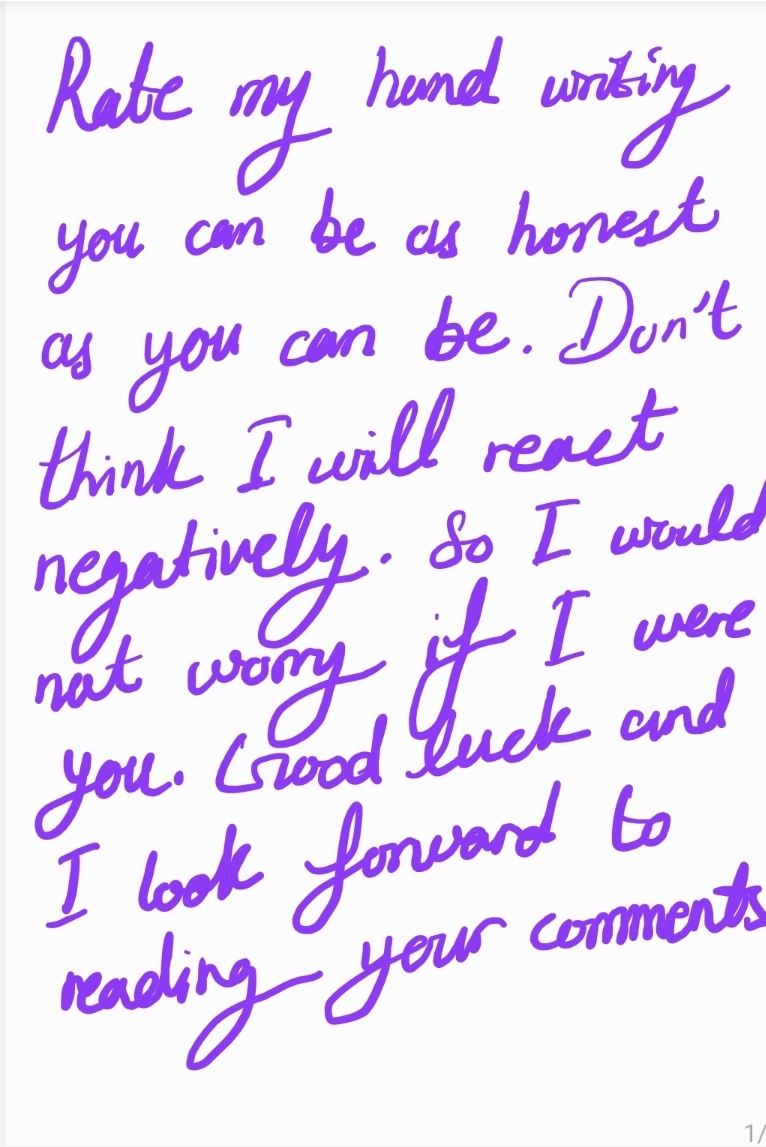 Rate my hand writing
you can be as honest
as you can be. Don't
think I will react
negatively. So I would
not worry if I were
you. Good luck and
I look forward to
reading your comments
1/